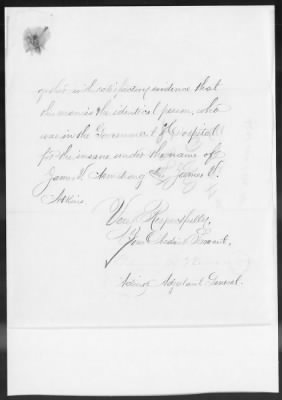 gether with satisfactory evidence that
the man is the identical person, who
was in the Government Hospital
for the insane under the name of
James V. Armstrong James V.
Atkins.
Very Respectfully,
Your Obedient Servant,
Adjutant General.